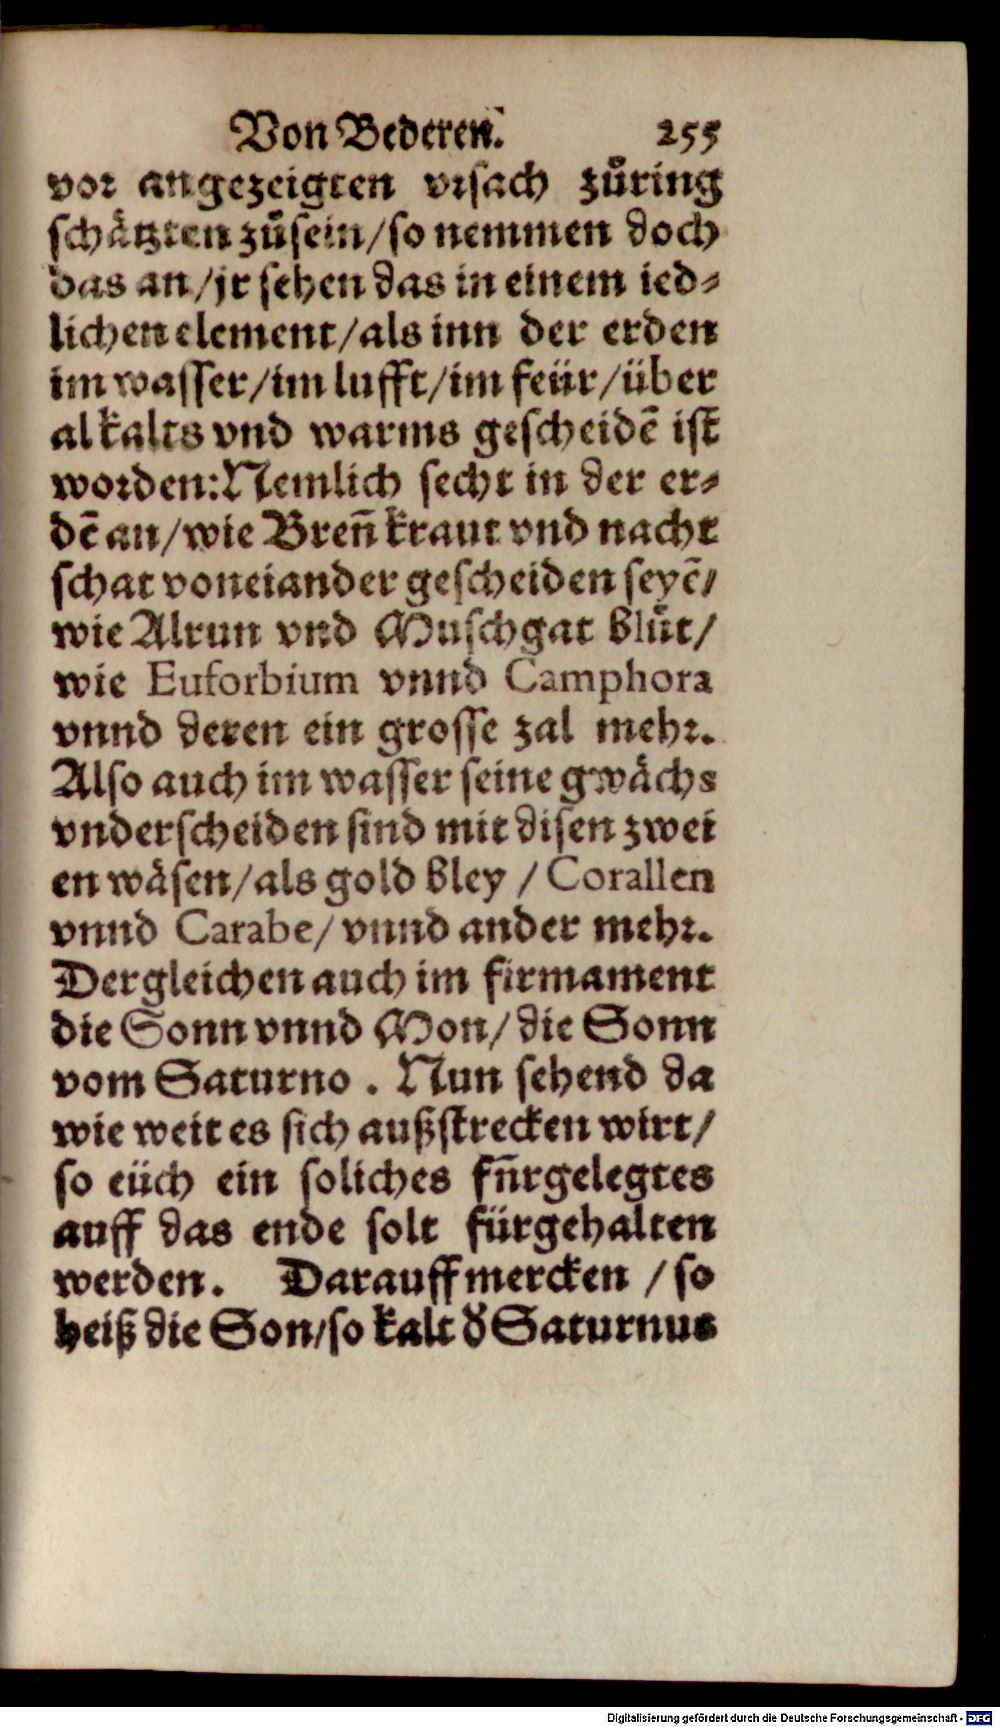 Von Bederen. 255
vor angezeigten vrsach zůring
schätzten zůsein/so nemmen doch
das an/jr sehen das in einem ied⸗
lichen element/als inn der erden
im wasser/im lufft/im feür/über
al kalts vnd warms gescheidẽ ist
worden:Nemlich secht in der er⸗
dẽ an/wie Breñ kraut vnd nacht
schat voneiander gescheiden seyẽ/
wie Alrun vnd Muschgat blůt/
wie Euforbium vnnd Camphora
vnnd deren ein grosse zal mehr.
Also auch im wasser seine gwächs
vnderscheiden sind mit disen zwei
en wäsen/als gold bley / Corallen
vnnd Carabe/ vnnd ander mehr.
Dergleichen auch im firmament
die Sonn vnnd Mon/ die Sonn
vom Saturno . Nun sehend da
wie weit es sich außstrecken wirt/
so eüch ein soliches fürgelegtes
auff das ende solt fürgehalten
werden. Darauff mercken / so
heiß die Son/so kalt d̕ Saturnus
Digitalisierung gefördert durch die Deutsche Forschungsgemeinschaft - DFG